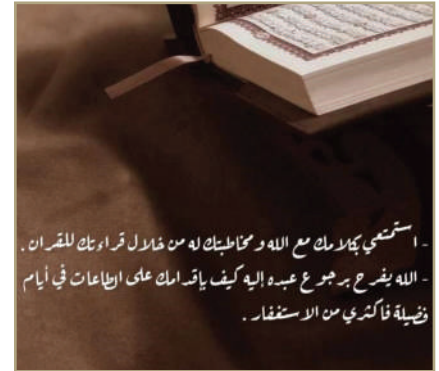 - استمتعي بكلامك مع الله ومخاطبتك له من خلال قراءتك للقران .
- الله يفرح برجوع عبده إليه كيف بإقدامك على الطاعات في أيام
فضيلة فاكثري من الاستغفار .